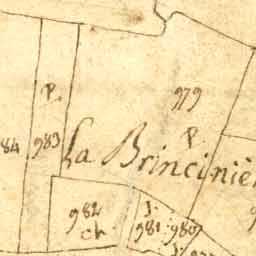 979
P.
P.
84
983
La Brinciniè
982
ch.
J.
981
980
J.